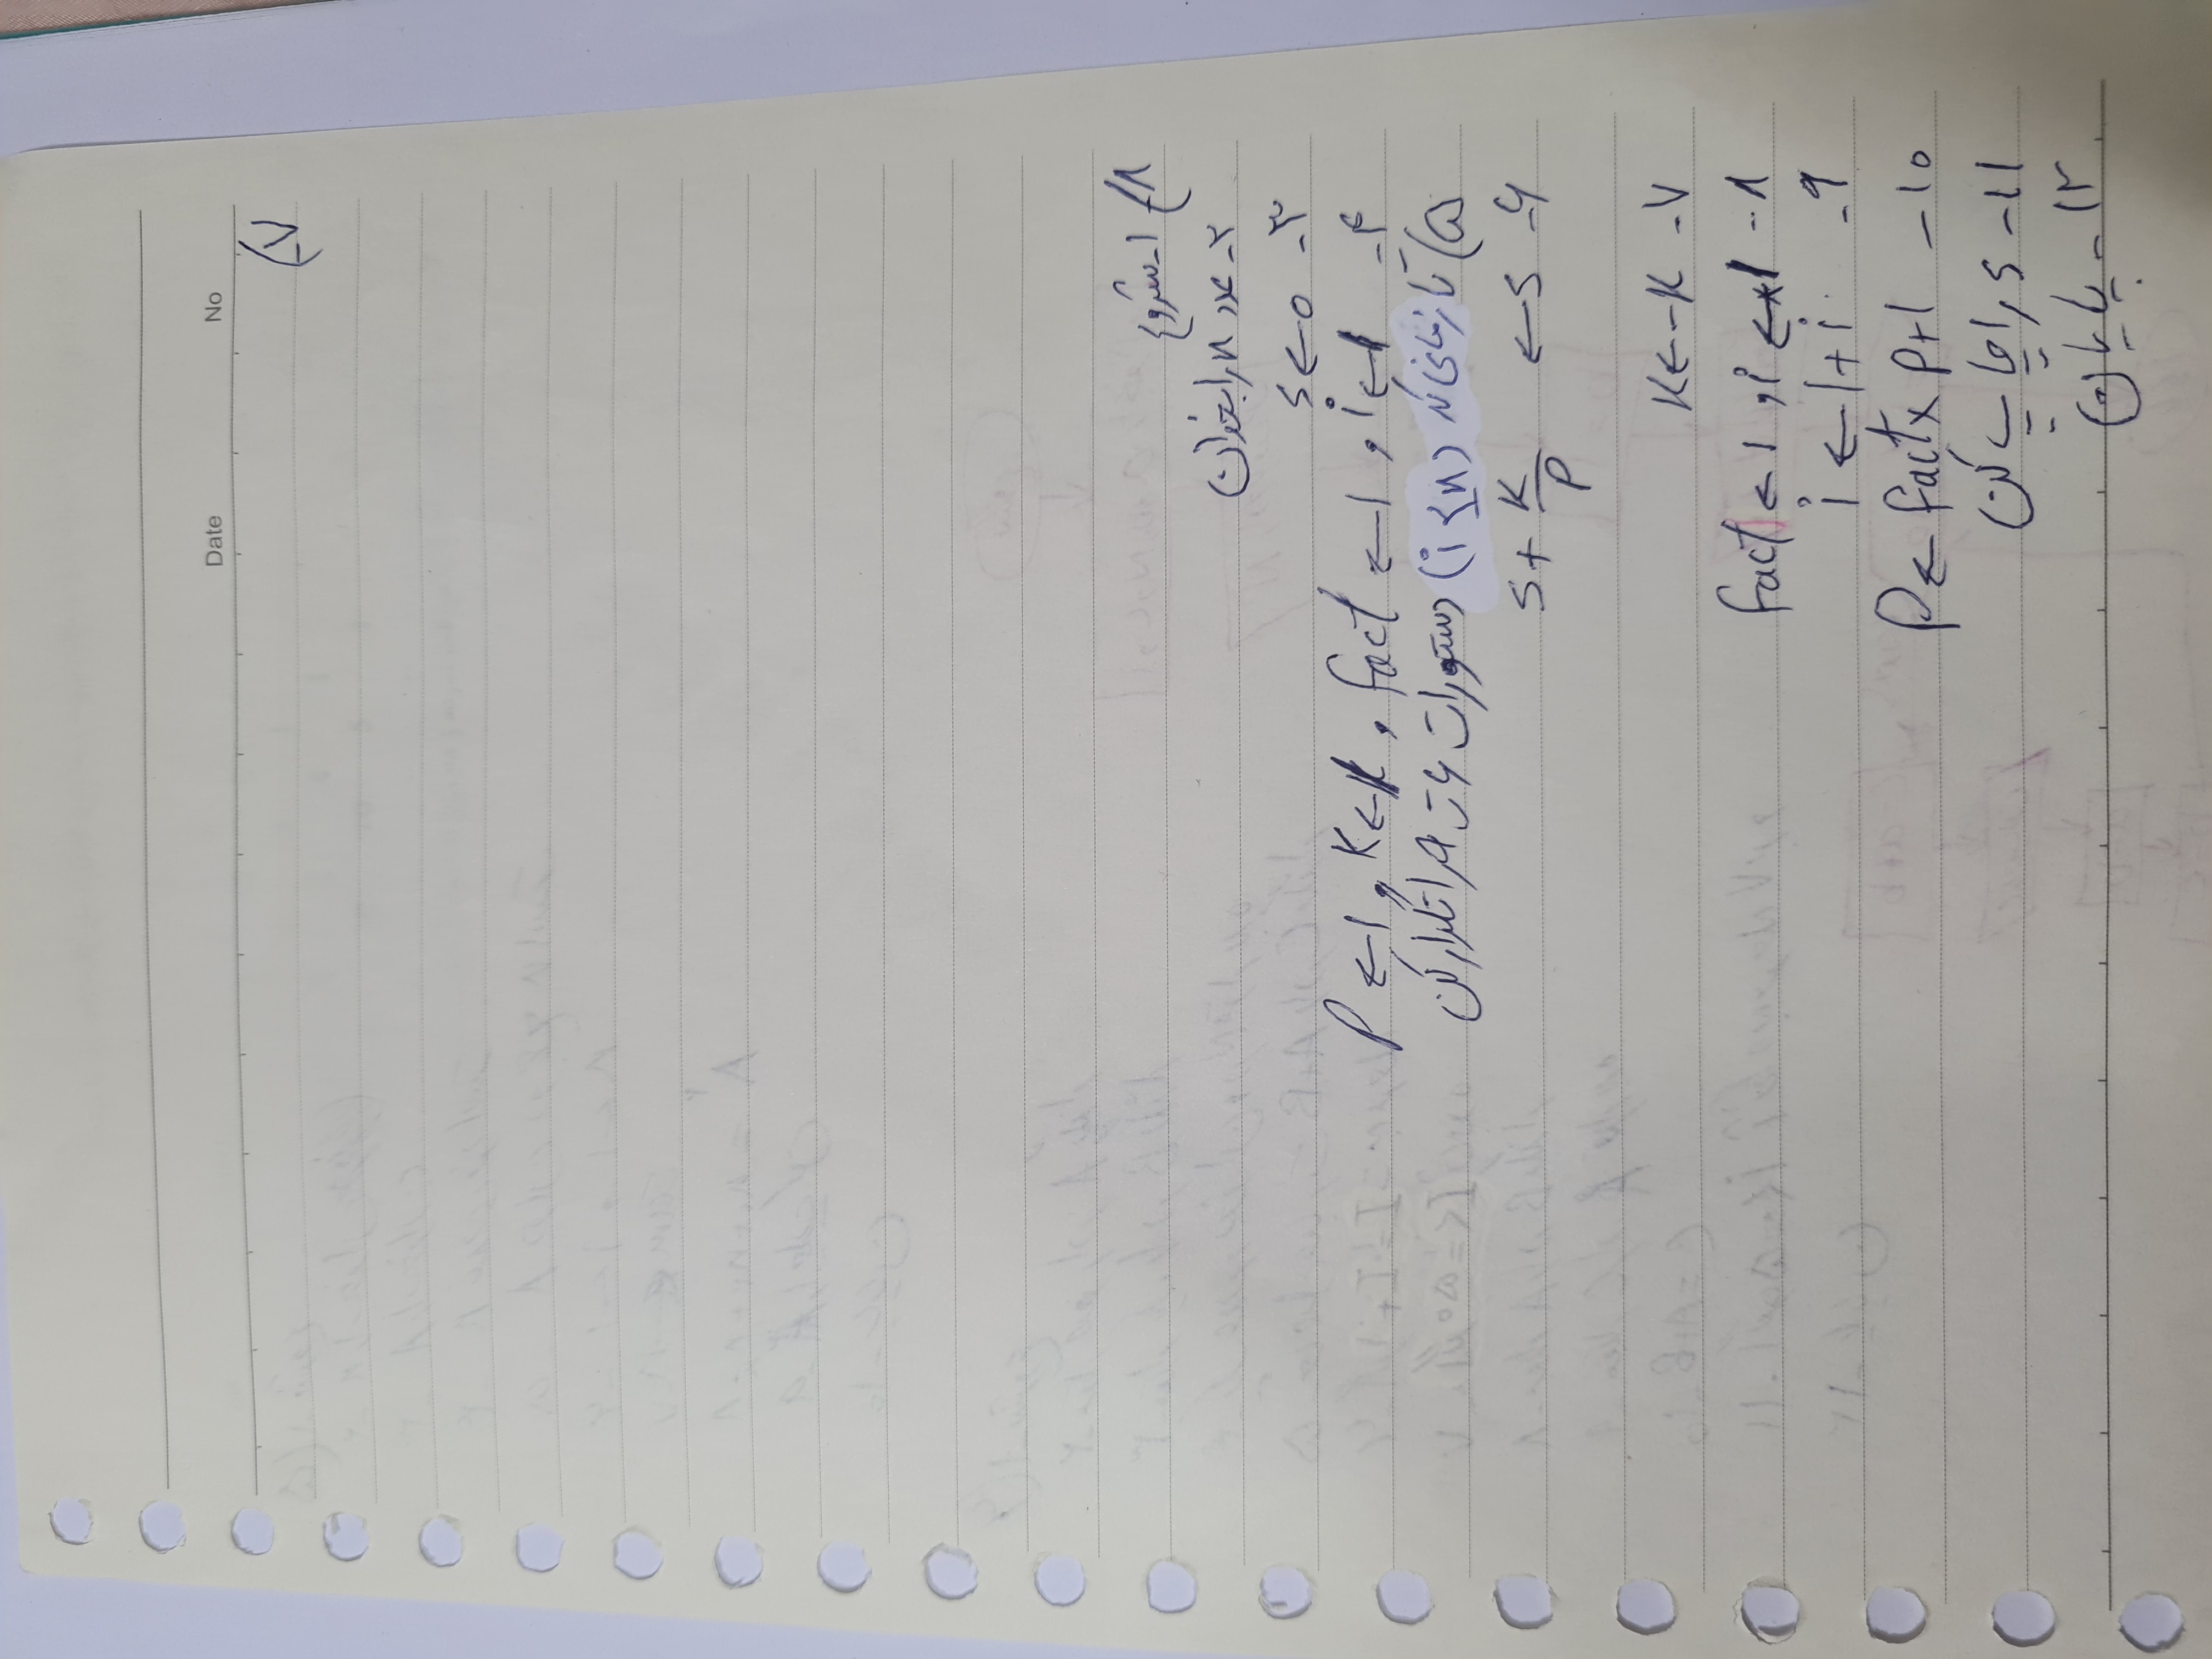 Date No
۷)
۸) ۱- شروع
۲- عدد n را بخوان
۳- s ← ۰
۴- i ← ۱ , fact ← ۱ , K ← , P ← ۱
۵) تا زمانی که (i ≤ n) دستورات ۶ تا را تکرار کن
۶- s ← s + K/P
۷- K ← -K
۸- fact ← ۱ , i ←
۹- i ← ۱ + i
۱۰- P ← fact × P+۱
۱۱- s را چاپ کن
۱۲- پایان